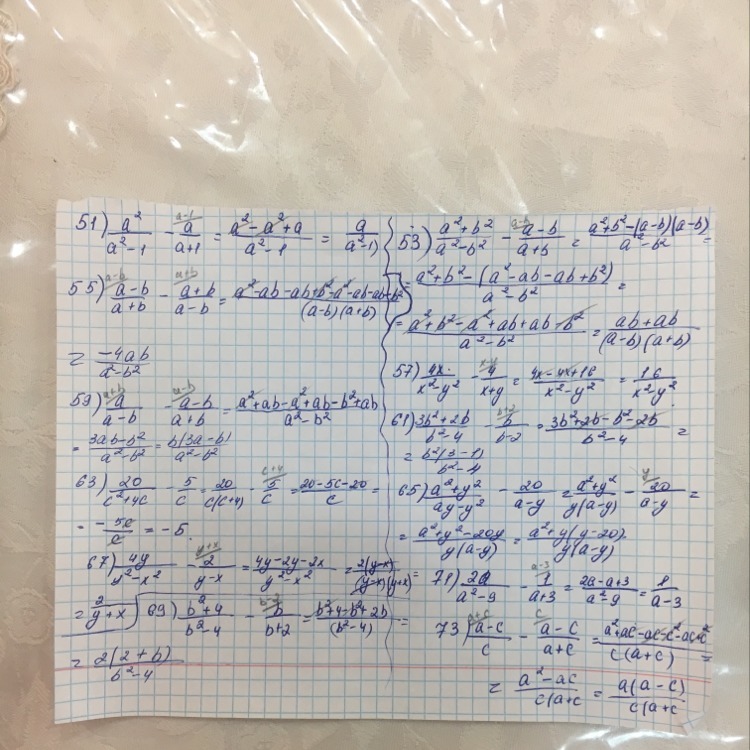 51) a²/(a²-1) - a/(a+1) (a-1) = (a²-a²+a)/(a²-1) = a/(a²-1)
55) (a-b)/(a+b) (a-b) - (a+b)/(a-b) (a+b) = (a²-ab-ab+b²-a²-ab-ab-b²)/((a-b)(a+b))
= -4ab/(a²-b²)
59) a/(a-b) (a+b) - (a-b)/(a+b) (a-b) = (a²+ab-a²+ab-b²+ab)/(a²-b²)
= (3ab-b²)/(a²-b²) = b(3a-b)/(a²-b²)
63) 20/(c²+4c) - 5/c = 20/(c(c+4)) - 5/c (c+4) = (20-5c-20)/c =
= -5c/c = -5.
67) 4y/(y²-x²) - 2/(y-x) (y+x) = (4y-2y-2x)/(y²-x²) = 2(y-x)/((y-x)(y+x)) =
= 2/(y+x)
69) (b²+4)/(b²-4) - b/(b+2) (b-2) = (b²+4-b²+2b)/(b²-4) =
= 2(2+b)/(b²-4)
53) (a²+b²)/(a²-b²) - (a-b)/(a+b) (a-b) = (a²+b²-(a-b)(a-b))/(a²-b²) =
= (a²+b²-(a²-ab-ab+b²))/(a²-b²) =
= (a²+b²-a²+ab+ab-b²)/(a²-b²) = (ab+ab)/((a-b)(a+b))
57) 4x/(x²-y²) - 4/(x+y) (x-y) = (4x-4x+16)/(x²-y²) = 16/(x²-y²)
61) (3b²+2b)/(b²-4) - b/(b-2) (b+2) = (3b²+2b-b²-2b)/(b²-4) =
= b²(3-1)/(b²-4)
65) (a²+y²)/(ay-y²) - 20/(a-y) = (a²+y²)/(y(a-y)) - 20/(a-y) (y) =
= (a²+y²-20y)/(y(a-y)) = (a²+y(y-20))/(y(a-y))
71) 2a/(a²-9) - 1/(a+3) (a-3) = (2a-a+3)/(a²-9) = 1/(a-3)
73) (a-c)/c (a+c) - (a-c)/(a+c) (c) = (a²+ac-ac-c²-ac+c²)/(c(a+c)) =
= (a²-ac)/(c(a+c) = a(a-c)/(c(a+c)